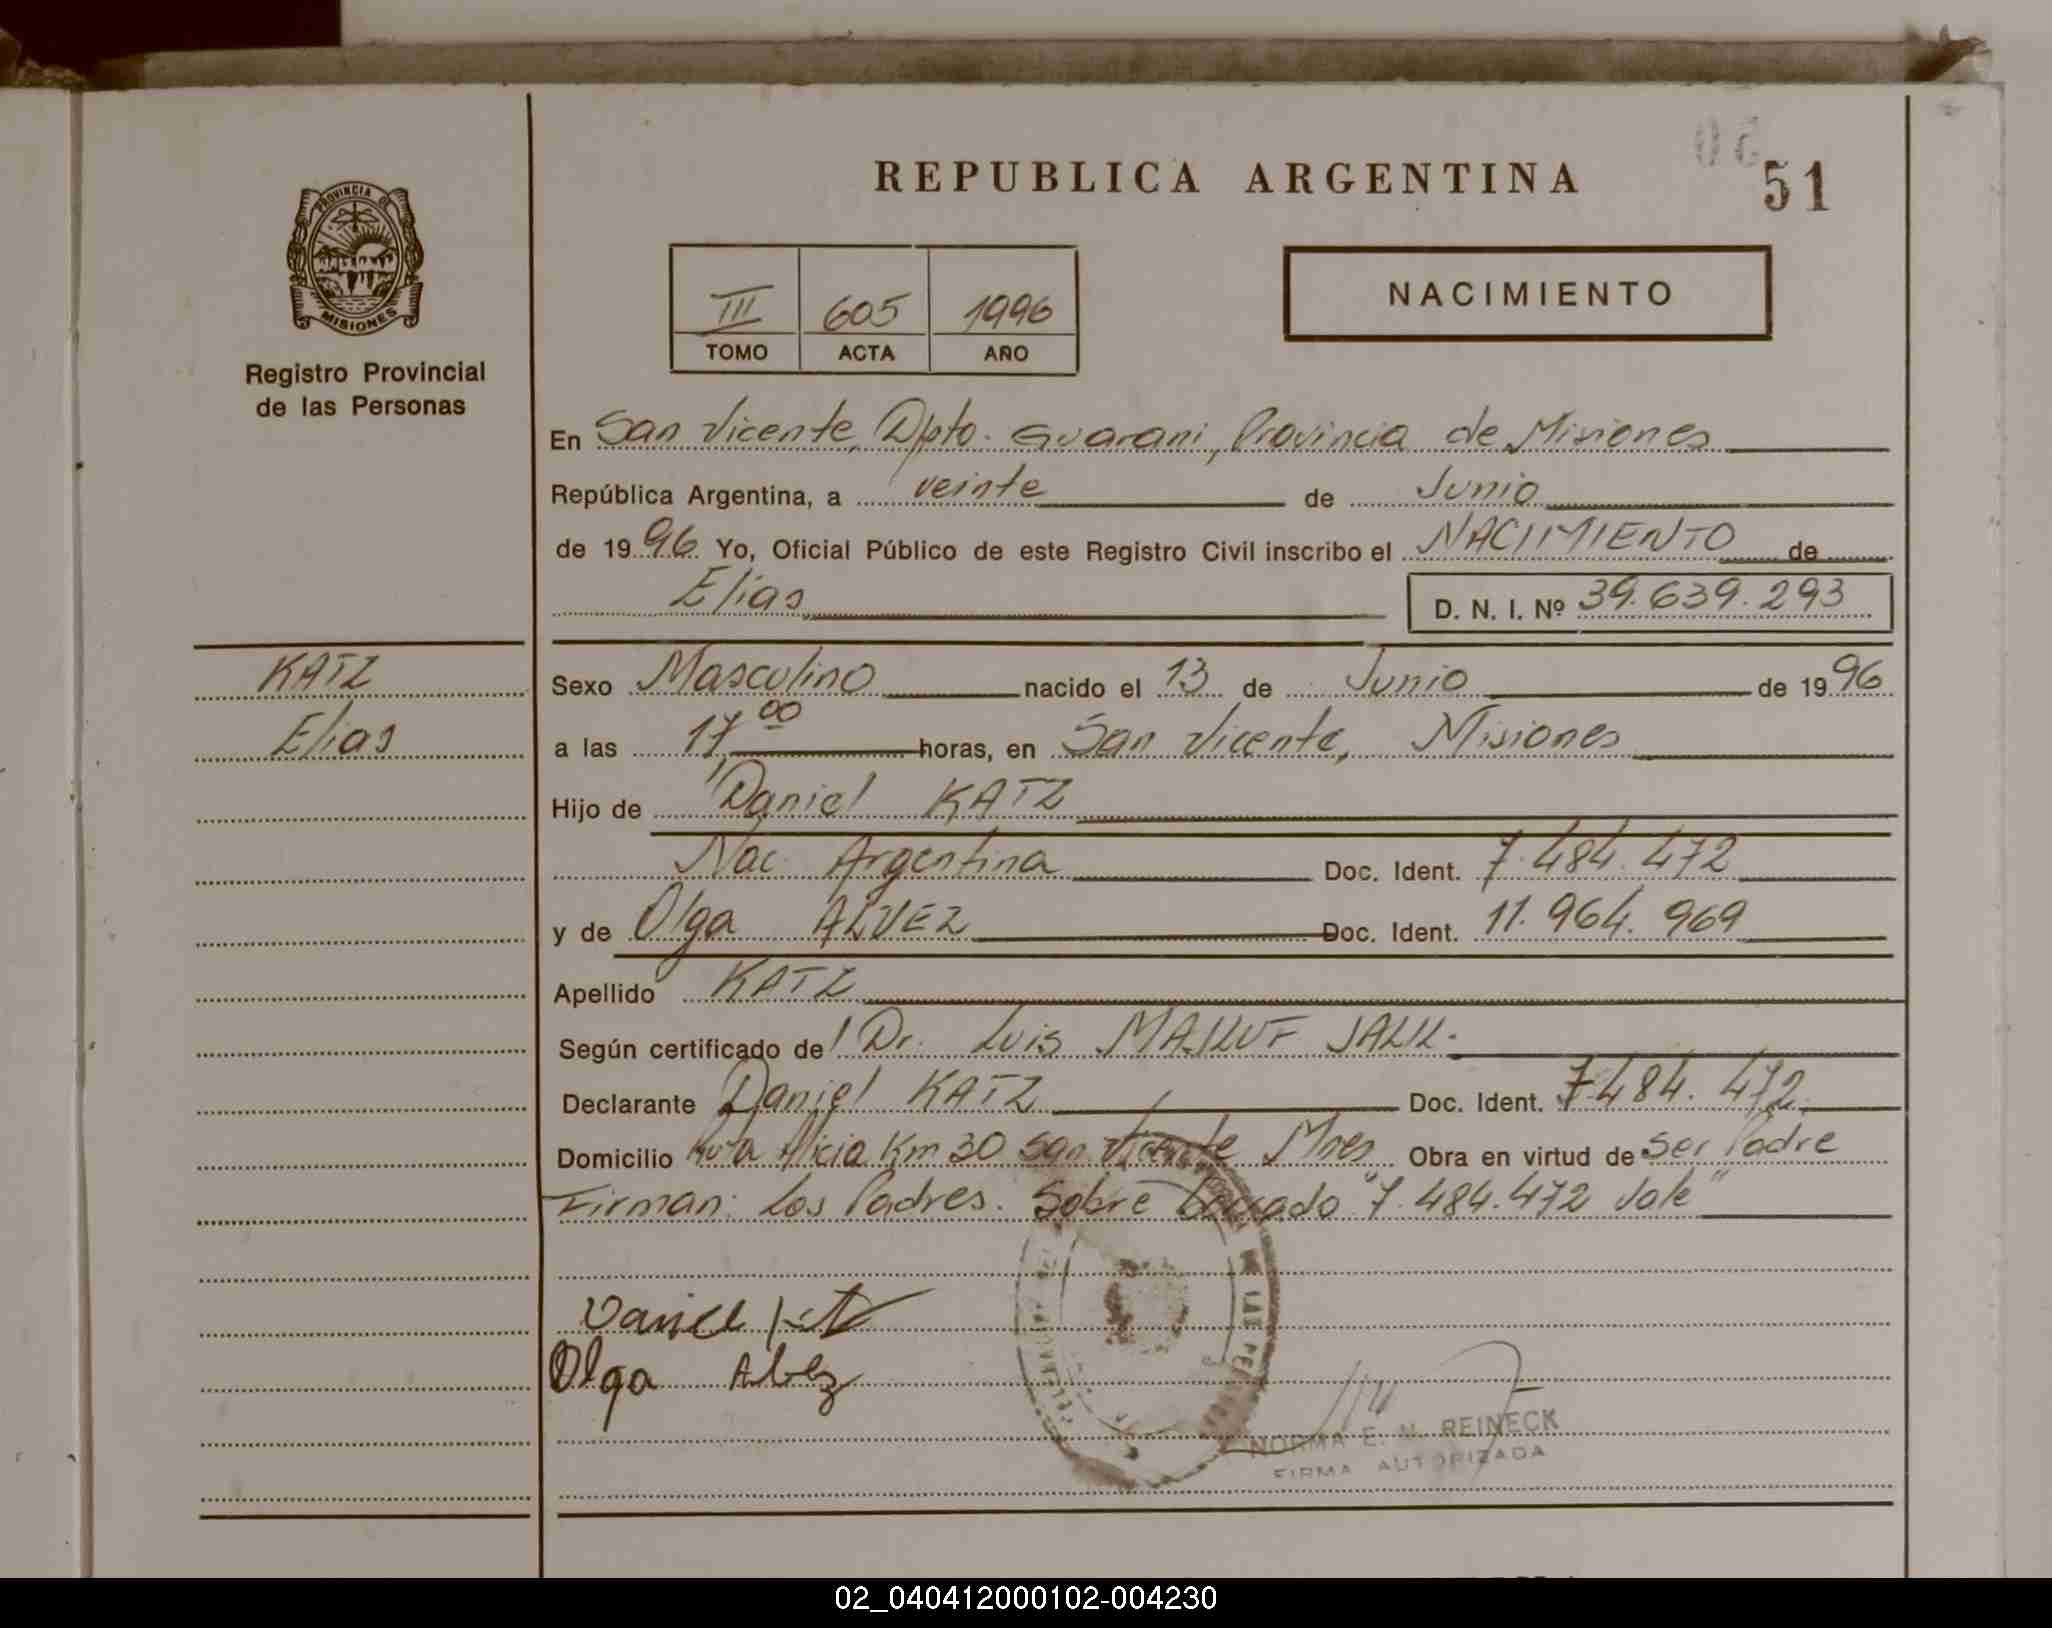 REPUBLICA ARGENTINA
51
PROVINCIA DE
MISIONES
Registro Provincial
de las Personas
III 605 1996
TOMO ACTA AÑO
NACIMIENTO
En San Vicente, Dpto. Guarani, Provincia de Misiones
República Argentina, a veinte de Junio
de 1996 Yo, Oficial Público de este Registro Civil inscribo el NACIMIENTO de
Elias D. N. I. Nº 39.639.293
KATZ
Elias
Sexo Masculino nacido el 13 de Junio de 1996
a las 17,00 horas, en San Vicente, Misiones
Hijo de Daniel KATZ
Nac. Argentina Doc. Ident. 7.484.472
y de Olga ALVEZ Doc. Ident. 11.964.969
Apellido KATZ
Según certificado de Dr. Luis
Declarante Daniel KATZ Doc. Ident. 7.484.472
Domicilio Ruta Alicia Km 30 San Vicente Mnes Obra en virtud de Ser Padre
Firman: Los Padres. Sobre "7.484.472 Vale"
Daniel
Olga Albez
LAS PE
NORMA E. N. REINECK
FIRMA AUTORIZADA
02_040412000102-004230